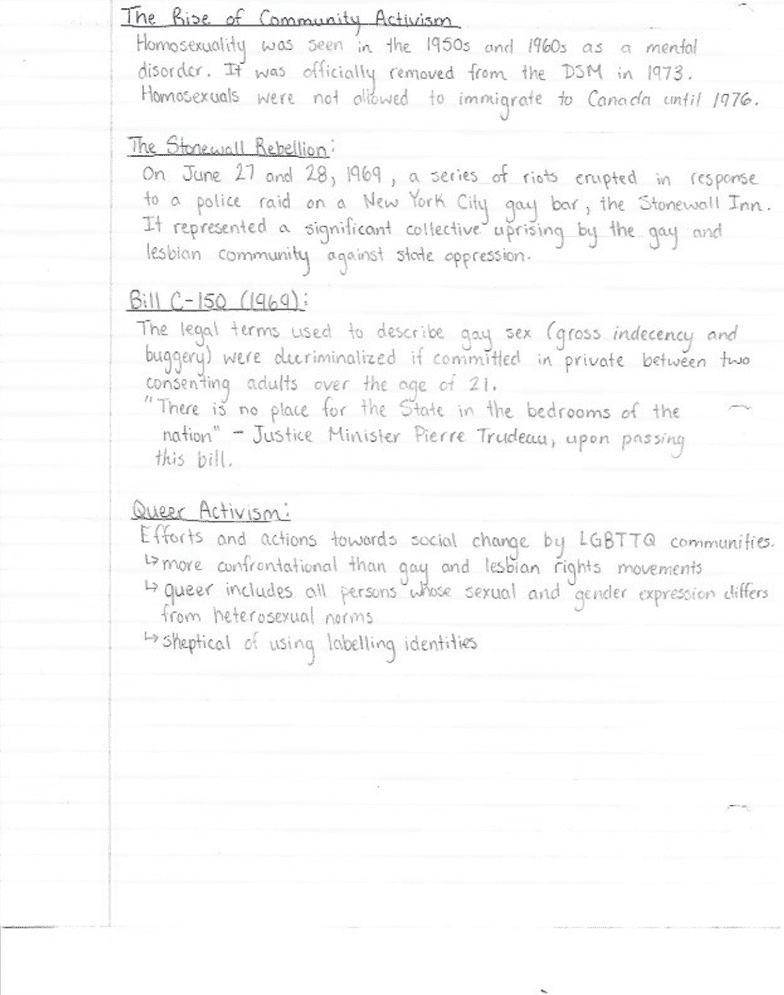 The Rise of Community Activism
Homosexuality was seen in the 1950s and 1960s as a mental
disorder. It was officially removed from the DSM in 1973.
Homosexuals were not allowed to immigrate to Canada until 1976.
The Stonewall Rebellion:
On June 27 and 28, 1969, a series of riots erupted in response
to a police raid on a New York City gay bar, the Stonewall Inn.
It represented a significant collective uprising by the gay and
lesbian community against state oppression.
Bill C-150 (1969):
The legal terms used to describe gay sex (gross indecency and
buggery) were decriminalized if committed in private between two
consenting adults over the age of 21.
"There is no place for the State in the bedrooms of the
nation" - Justice Minister Pierre Trudeau, upon passing
this bill.
Queer Activism:
Efforts and actions towards social change by LGBTTQ communities.
↳ more confrontational than gay and lesbian rights movements
↳ queer includes all persons whose sexual and gender expression differs
from heterosexual norms
↳ skeptical of using labelling identities